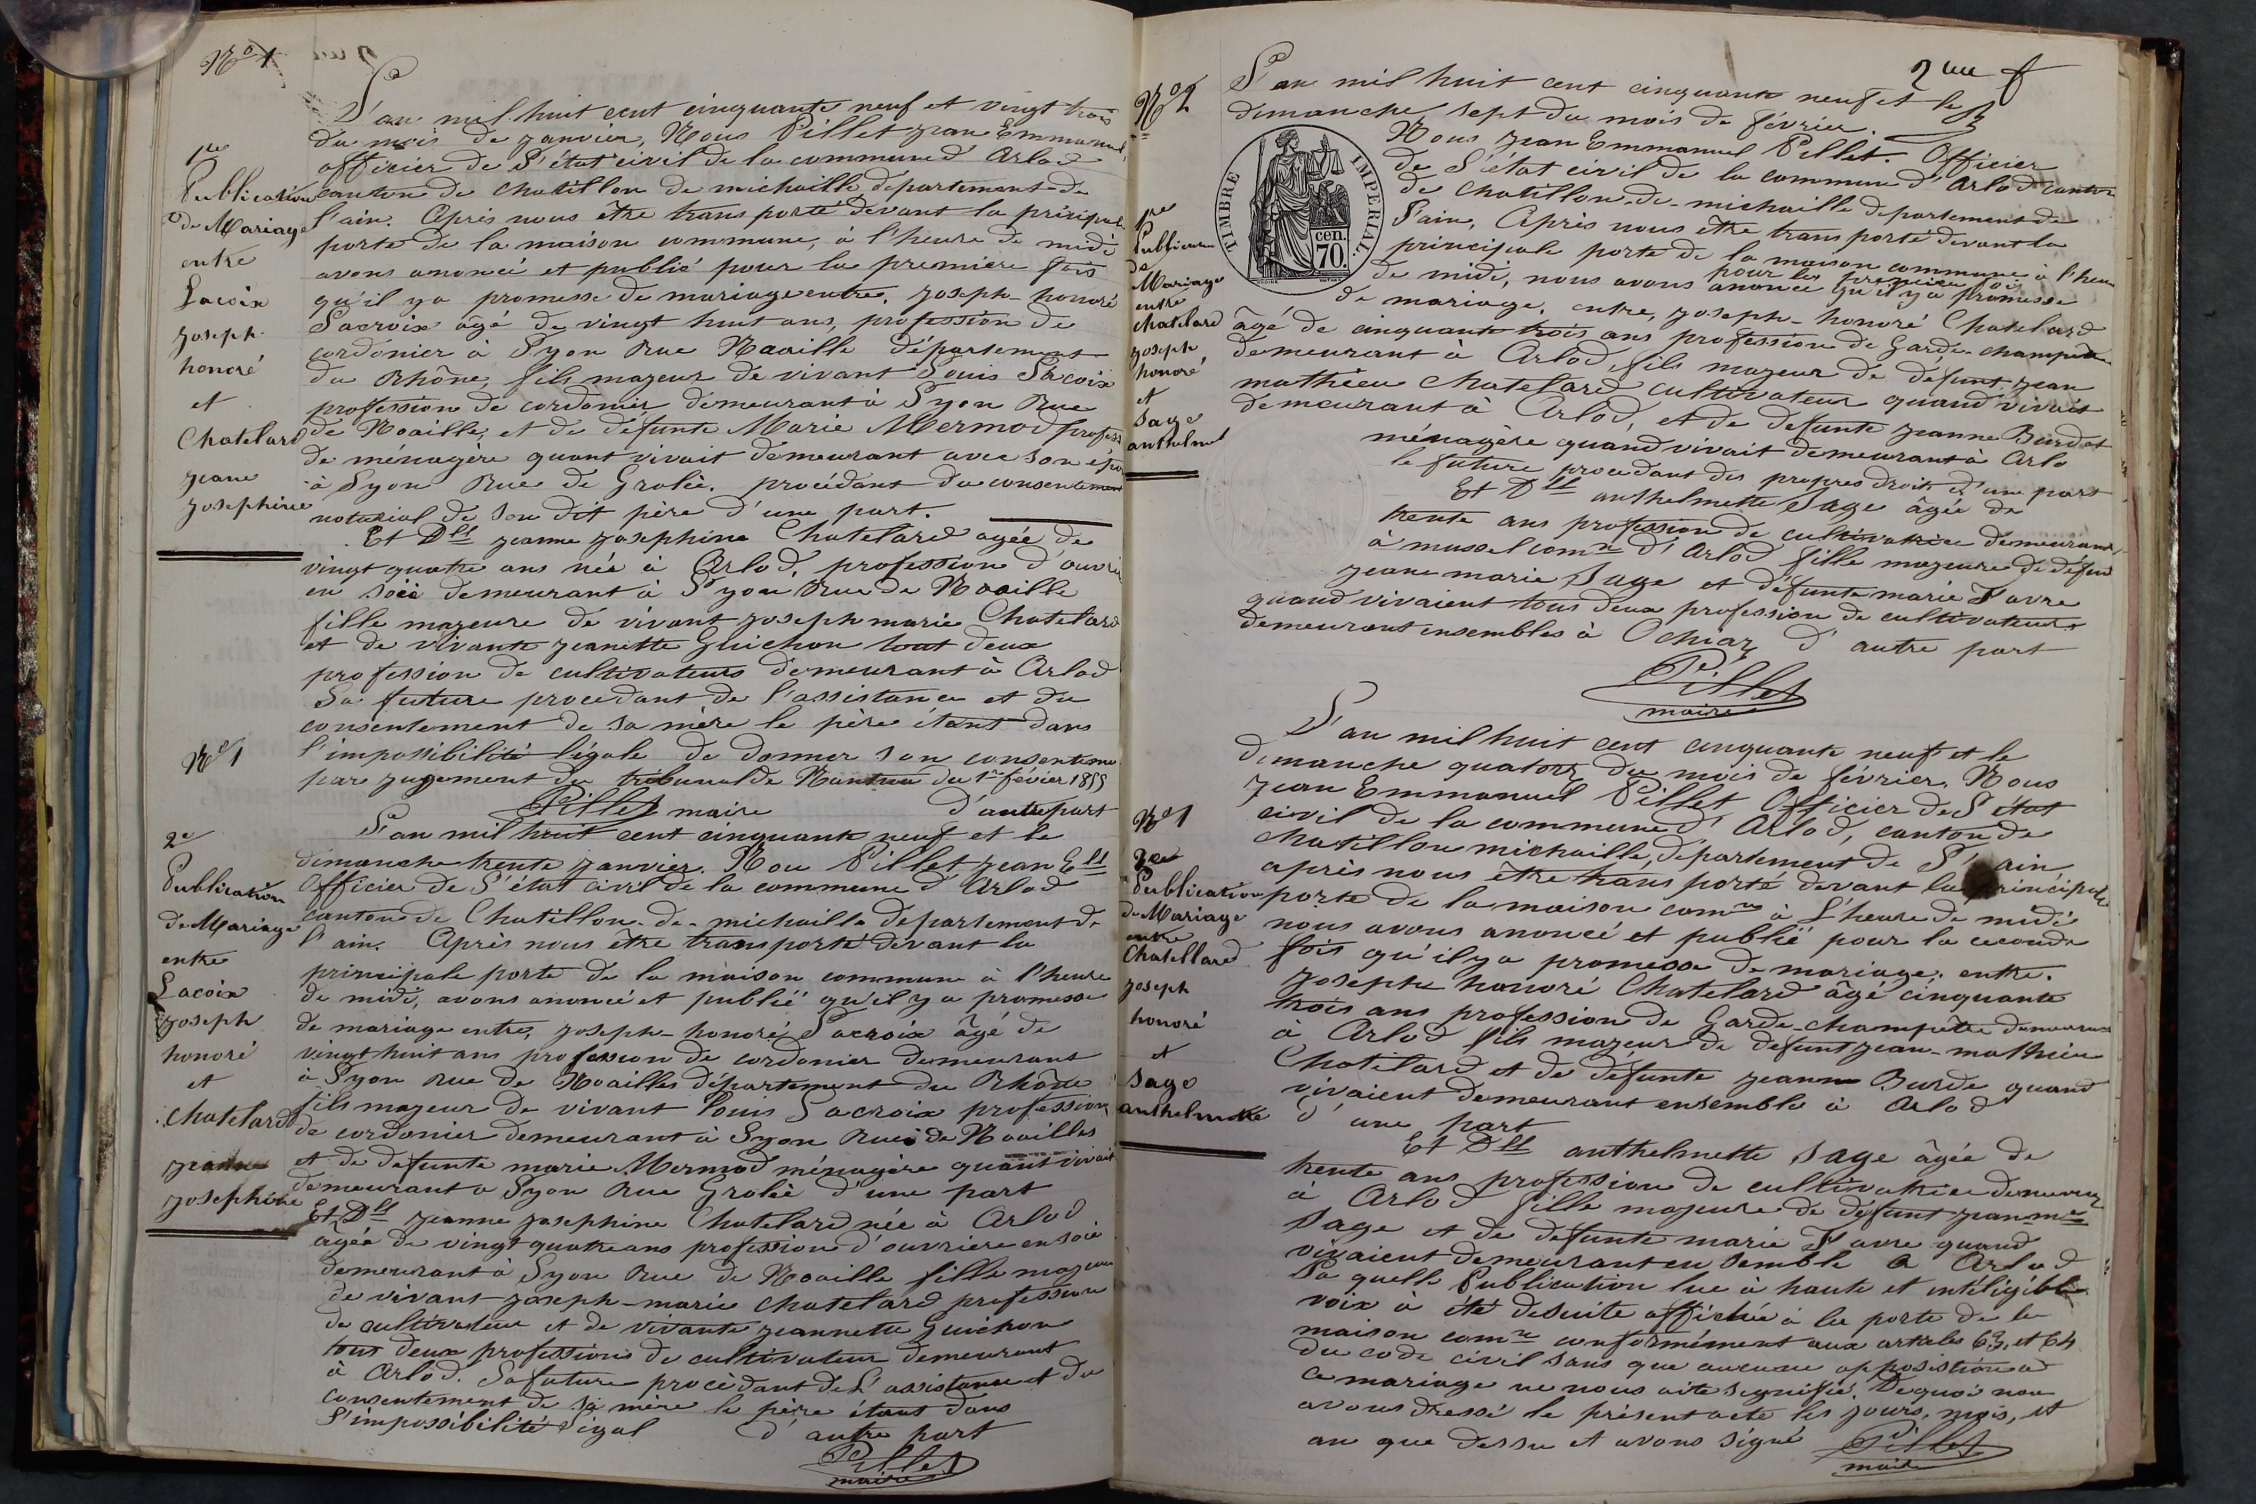 N° 1
1re
Publication
de Mariage
entre
Lacoix
joseph
honoré
et
Chatelard
jeane
josephine
L'an mil huit cent cinquante neuf et vingt trois
du mois de janvier, Nous Pillet jean Emmanuel,
officier de l'état civil de la commune d'Arlod
canton de chatillon de michaille département de
l'ain. Après nous être transporté devant la principale
porte de la maison commune, à l'heure de midi
avons anoncé et publié pour la première fois
qu'il y a promesse de mariage entre, joseph-honoré
Lacroix âgé de vingt huit ans, profession de
cordonier à Lyon Rue Noaille département
du Rhône, fils majeur de vivant Louis Lacoix
profession de cordonier demeurant à Lyon Rue
de Noaille, et de défunte Marie Mermod profess
de ménagère quant vivait demeurant avec son épou
à Lyon Rue de Grolée. procédant du consentement
notarial de son dit père d'une part.
Et Dlle jeanne josephine Chatelard agée de
vingt quatre ans née à Arlod, profession d'ouvriè
en soie demeurant à Lyon Rue de Noaille
fille majeure de vivant joseph marie Chatelard
et de vivante jeanette Guichon tout deux
profession de cultivateurs demeurant à Arlod
La future procedant de l'assistance et du
consentement de sa mère le père étant dans
l'impossibilité légale de donner son consenteme
par jugement du tribunal de Nantua du 1er févier 1855
Pillet maire d'autre part
N° 1
2e
Publication
de Mariage
entre
Lacoix
joseph
honoré
et
Chatelard
jeanne
josephine
L'an mil huit cent cinquante neuf et le
dimanche trente janvier. Nou Pillet jean Ell
Officier de l'état civil de la commune d'Arlod
canton de Chatillon-de-michaille département de
l'ain. Après nous être transporté devant la
principale porte de la maison commune à l'heure
de midi, avons anoncé et publié qu'il y a promesse
de mariage entre, joseph-honoré Lacroix âgé de
vingt huit ans profession de cordonier demeurant
à Lyon Rue de Noailles département du Rhône
fils majeur de vivant louis Lacroix profession
de cordonier demeurant à Lyon Rue de Noailles
et de défunte marie Mermod ménagère quant vivait
demeurant a Lyon Rue Grolée d'une part
Et Dlle jeanne josephine Chatelard née à Arlod
agée de vingt quatre ans profession d'ouvriere en soie
demeurant à Lyon Rue de Noaille fille majeure
de vivant joseph-marie chatelard profession
de cultivateur et de vivante jeannette Guichon
tous deux profession de cultivateur demeurant
à Arlod. La future procèdant de L'assistance et du
consentement de sa mère le père étant dans
l'impossibilité légal d'autre part
Pillet
maire
2me f
N° 2
1re
Publication
de
Mariage
entre
chatelard
joseph
honoré
et
Sage
anthelme
L'an mil huit cent cinquante neuf et le
dimanche sept du mois de février.
TIMBRE IMPERIAL.
cen.
70.
Nous jean Emmanuel Pillet. Officier
de l'état civil de la commune d'Arlod canton
de Chatillon-de-michaille département de
l'ain, Après nous être transporté devant la
principale porte de la maison commune à l'heu
pour la première fois
de midi, nous avons anoncé qu'il y a promesse
de mariage, entre, joseph-honoré Chatelard
âgé de cinquante trois ans profession de Garde-champêtre
demeurant à Arlod, fils majeur de défunt jean
mathieu chatelard cultivateur quand vivait
demeurant à Arlod, et de défunte jeanne Burdet
ménagère quand vivait demeurant à Arlo
le future procedant des propres droits d'une part
Et Dlle anthelmette Sage âgée de
trente ans profession de cultivatrice demeurant
à mussel comne d'Arlod fille majeure de défun
jeane marie Sage et défunte marie Favre
quand vivaient tous deux profession de cultivateurs
demeurant ensembles à Ochiaz d'autre part
Pillet
maire
N° 1
2me
Publication
de Mariage
entre
Chatellard
joseph
honoré
et
Sage
anthelmette
L'an mil huit cent cinquante neuf et le
dimanche quatorz du mois de février. Nous
jean Emmanuel Pillet Officier de l'état
civil de la commune d'Arlod, canton de
chatillon michaille, département de L'ain
après nous être transporté devant la principale
porte de la maison comne à L'heure de midi
nous avons anoncé et publié pour la ceconde
fois qu'il y a promesse de mariage. entre.
joseph honoré Chatelard âgé cinquante
trois ans profession de Garde-champêtre demeurant
à Arlod fils majeur de defunt jean-mathieu
Chatelard et de défunte jeanne Burde quand
vivaient demeurant ensemble à Arlod
d'une part
Et Dlle anthelmette Sage âgée de
trente ans profession de cultivatrice demeuran
à Arlod fille majeure de défunt jean-me
Sage et de défunte marie Favre quand
vivaient demeurant ensemble a Arlod
La quelle Publication lue à haute et intéligible
voix à été desuite affichée à la porte de la
maison comne conformément aux articles 63, et 64
du code civil sans que aucune opposistion a
ce mariage ne nous aite signifié. De quoi nou
avons dressé le présent acte les jours, mois, et
an que dessu et avons signé Pillet
maire